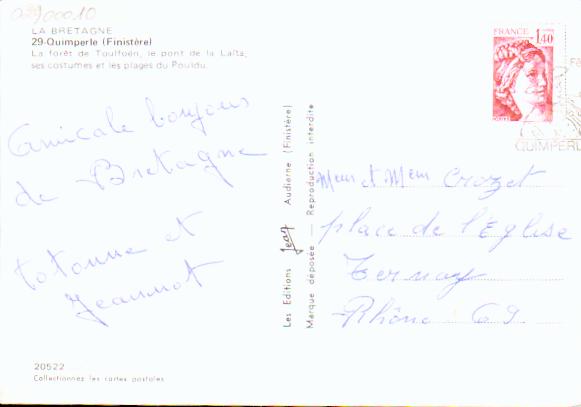 0290010
LA BRETAGNE
29-Quimperle (Finistère)
La forêt de Toulfoën, le pont de la Laïta,
ses costumes et les plages du Pouldu.
FRANCE 1,40
QUIMPERL
Amicale bonjour
de Bretagne
totonne et
Jeannot
Les Editions Jean Audierne (Finistère)
Marque déposée — Reproduction interdite
Crozet
place de l'Eglise
Ternay
Rhône 69
20522
Collectionnez les cartes postales